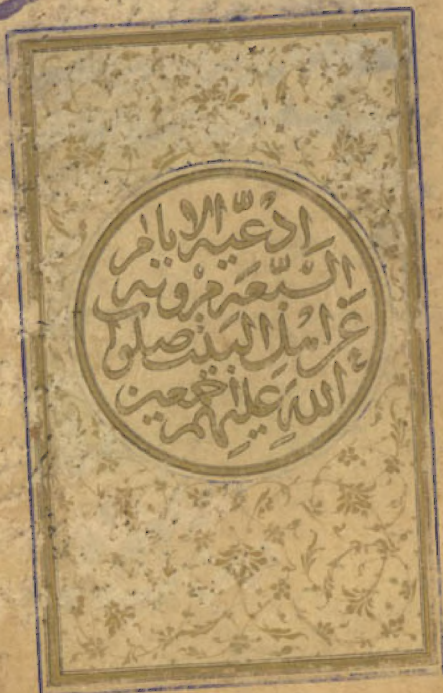 ادعیه الایام
السبعة مرویه
عن اهل البیت صلوات
الله علیهم اجمعین